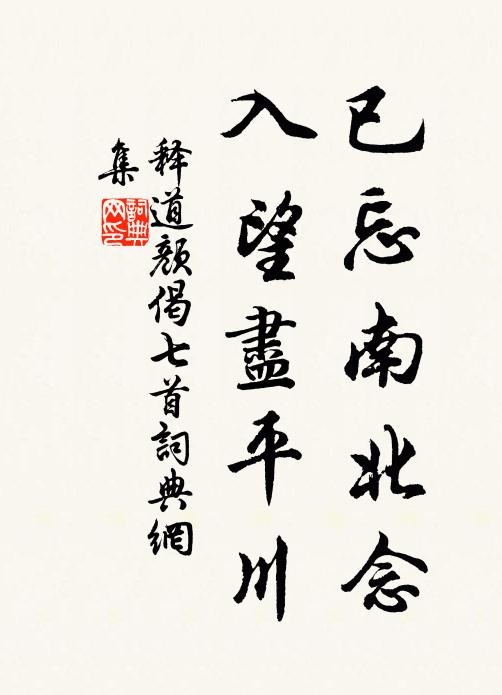 已忘南北念
入望盡平川
释道颜偈七首詞典網
集
詞典
网印